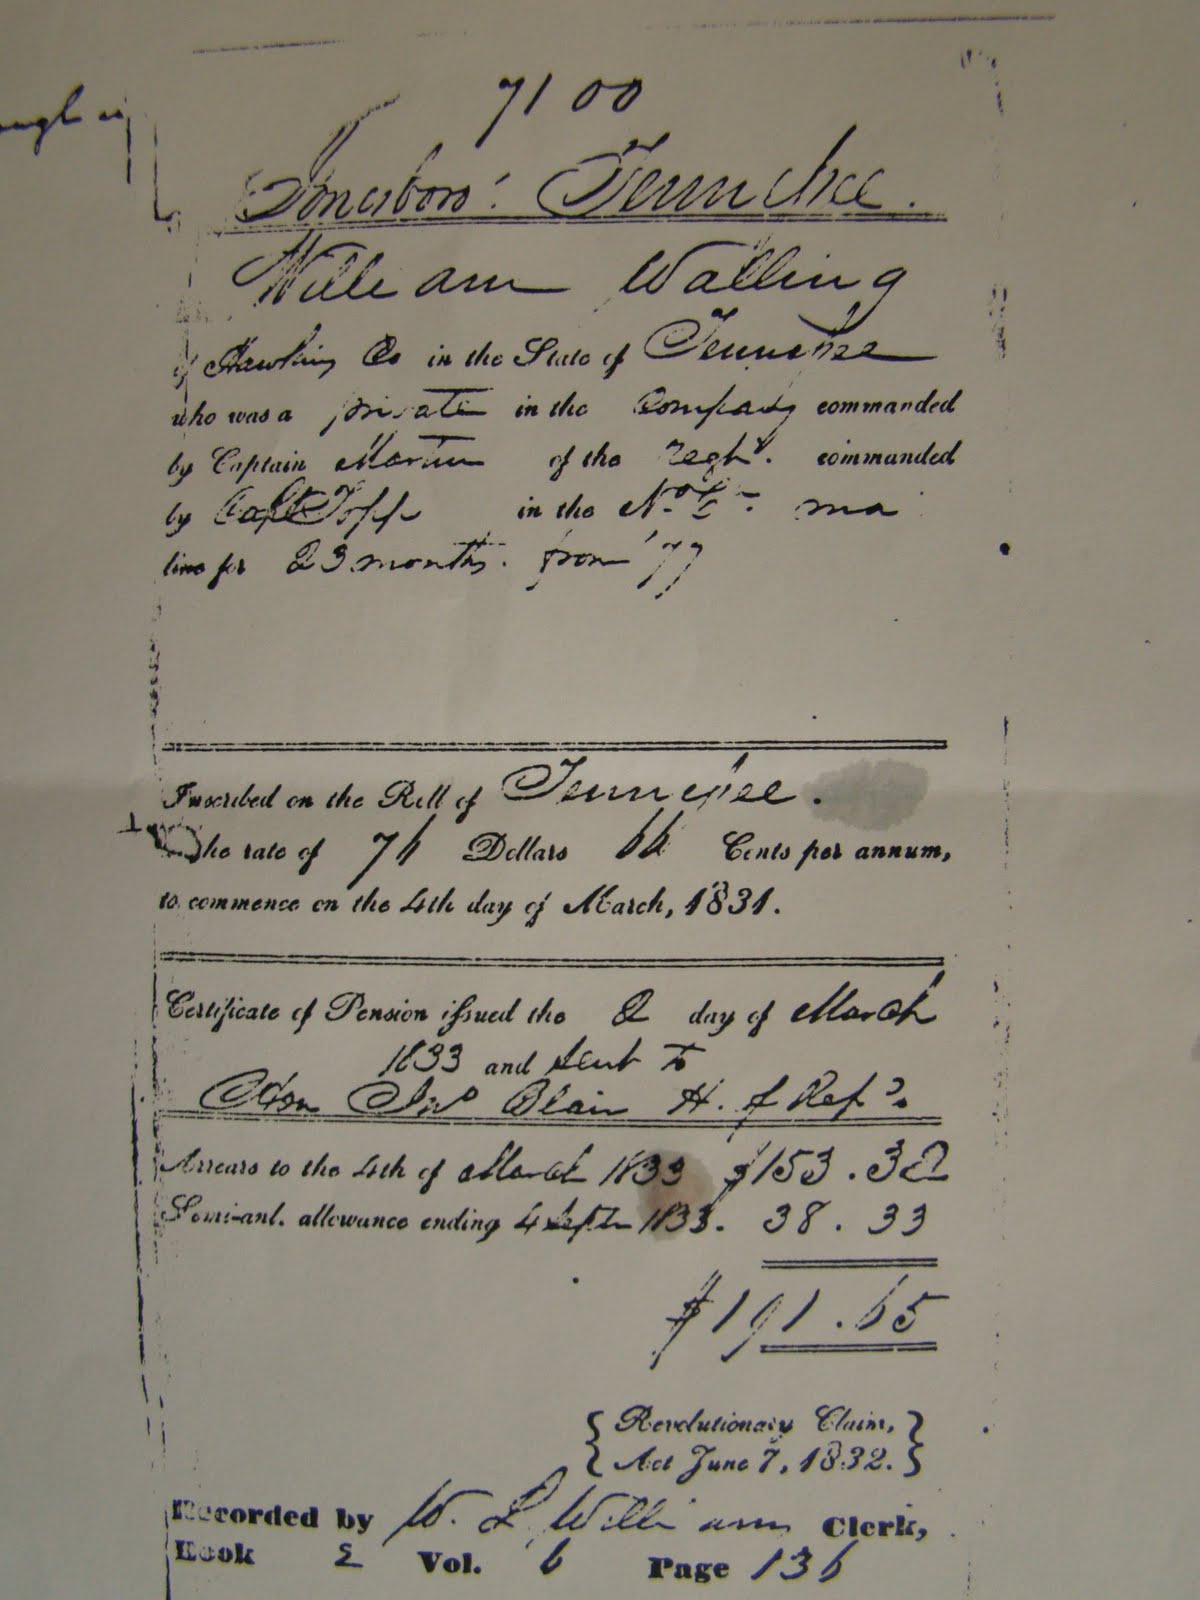 7100
Jonesboro'. Tennessee.
William Walling
of Hawkins Co in the State of Tennessee
who was a private in the Company commanded
by Captain Martin of the regt. commanded
by Capt Topp in the
line for 23 months. from '77
Inscribed on the Roll of Tennessee.
he rate of 76 Dollars 66 Cents per annum,
to commence on the 4th day of March, 1831.
Certificate of Pension issued the 2 day of March
1833 and sent to
Hon Jno Blair H. of Reps.
Arrears to the 4th of March 1833 $153.32
Semi-anl. allowance ending 4 Septr 1833. 38.33
$191.65
Revolutionary Claim,
Act June 7, 1832.
Recorded by W. L. Williams Clerk,
Book E Vol. 6 Page 136